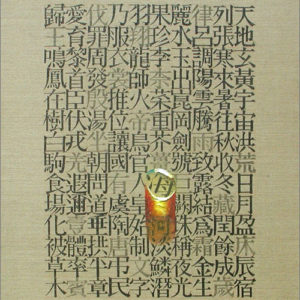 天地玄黃宇宙洪荒日月盈昃辰宿
列張寒來暑往秋收冬藏閏餘成歲
律呂調陽雲騰致雨露結為霜金生
麗水玉出崑岡劍號巨闕珠稱夜光
果珍李柰菜重芥薑海河淡鱗潛
羽翔龍師火帝鳥官人皇始制文字
乃服衣裳推位讓國有虞陶唐弔民
伐罪周發殷湯坐朝問道垂拱平章
愛育黎首臣伏戎羌遐邇壹體率賓
歸王鳴鳳在樹白駒食場化被草木